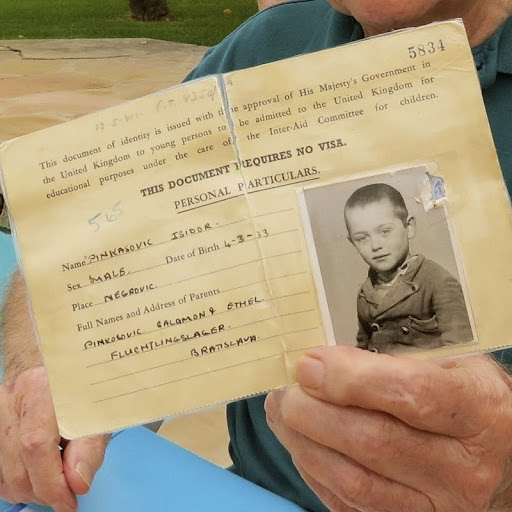 5834
This document of identity is issued with the approval of His Majesty's Government in
the United Kingdom to young persons to be admitted to the United Kingdom for
educational purposes under the care of the Inter-Aid Committee for children.
THIS DOCUMENT REQUIRES NO VISA.
PERSONAL PARTICULARS.
565
Name PINKASOVIC ISIDOR.
Sex MALE. Date of Birth 4-3-33
Place NEGROVIC.
Full Names and Address of Parents
PINKOSOVIC SALAMON & ETHEL
FLUCHTLINGSLAGER.
BRATISLAVA.